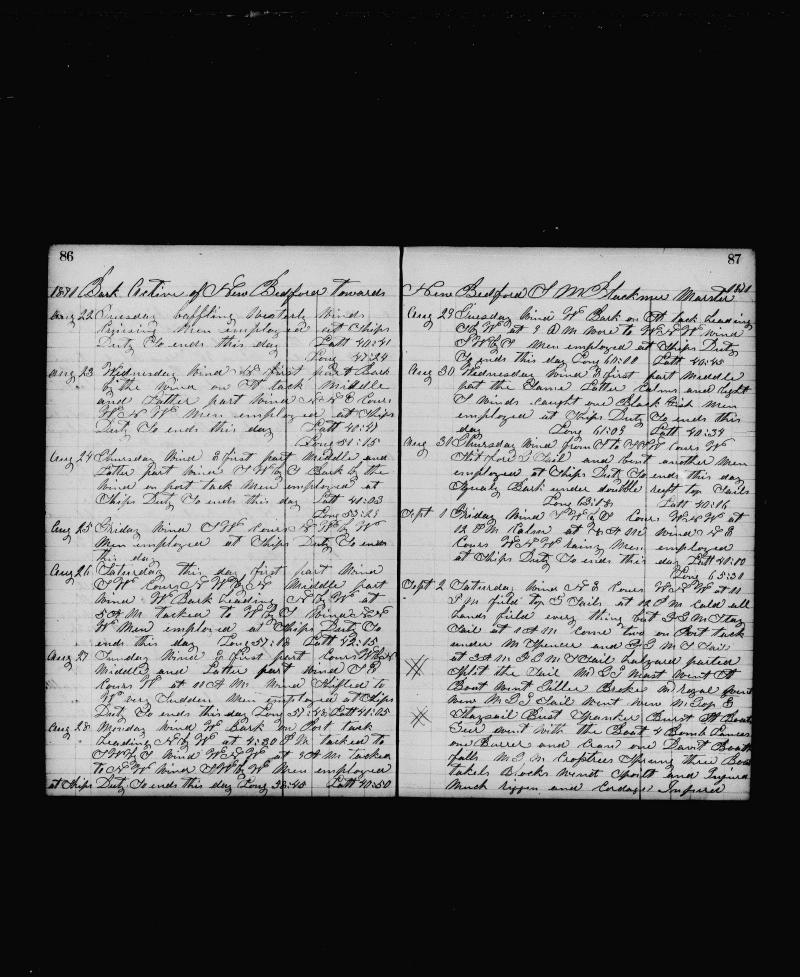 86
1871 Bark Active of New Bedford towards
Aug 22 Tuesday baffling Westerly Winds
Cruising Men employed at Ships
Duty So ends this day Latt 40:41
Long 47:24
Aug 23 Wednesday Wind N first part Bark
by the Wind on W tack Middle
and Latter part Wind N N E Cours
W N W Men employed at Ships
Duty So ends this day Latt 40:41
Long 51:15
Aug 24 Thursday Wind E first part Middle and
Latter part Wind S W by S Bark by the
Wind on port tack Men employed at
Ships Duty So ends this day Latt 41:03
Long 53:29
Aug 25 Friday Wind S W Cours N W by W
Men employed at Ships Duty So ends
this day
Aug 26 Saturday this day first part Wind
S W Cours N W by N Middle part
Wind W Bark Leading N by W at
5 A M tacked to W by S Wind N N
W Men employed at Ships Duty So
ends this day Long 57:13 Latt 42:15
Aug 27 Sunday Wind E first part Cours W by N
Middle and Latter part Wind S E
Cours W at 11 A M Wind Shifted to
W very Sudden Men employed at Ships
Duty So ends this day Long 57:48 Latt 41:25
Aug 28 Monday Wind W Bark on Port tack
Leading N by W at 4:30 P M tacked to
S W by S Wind W N W at 9 A M tacked
to N W Wind S W by W Men employed
at Ships Duty So ends this day Long 58:45 Latt 40:50
87
New Bedford T M Master 1871
Aug 29 Tuesday Wind W Bark on St tack Leading
S by W at 9 A M wore to W N W Wind
S W by S Men employed at Ships Duty
So ends this day Long 60:00 Latt 40:45
Aug 30 Wednesday Wind E first part Middle
part the Same Latter Calms and light
S Winds Caught one Black fish Men
employed at Ships Duty So ends this
day Long 61:09 Latt 40:34
Aug 31 Thursday Wind from S to W Cours W
Sail and bent another Men
employed at Ships Duty So ends this day
Squaly Bark under double reeft top Sails
Long 63:18 Latt 40:16
Sept 1 Friday Wind S W by S Cours W N W at
12 P M Calm at 4 A M Wind N E
Cours W N W Rainy Men employed
at Ships Duty So ends this day Latt 40:10
Long 65:30
Sept 2 Saturday Wind N E Cours W N W at 10
P M furld top G Sails at 12 P M Cald all
hands furld every thing but F T M Stay
Sail at 1 A M Come two on Port tack
under M Spencer and F T M S Sail
at 3 A M F T M S Sail halyard parted
Split the Sail M T G Mast Went St
Boat Went Tiller Broke M royal Went
new M T G Sail Went new M Top G
Staysail Bust Spanker Burst St Boats
Gear went with the Boat 4 Bomb Lances
one Barrel and Crane one Davit Boat
falls M T M Crosstrees Sprung three Boat
takels Blocks went Sparrs and Injured
Much riggin and Cordage Injured